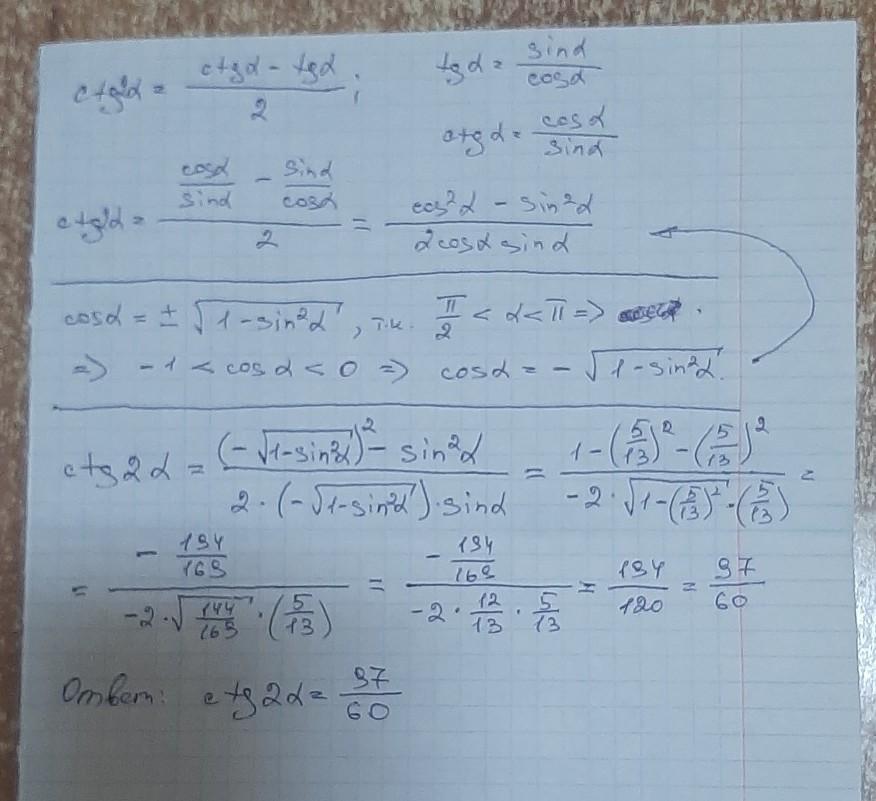 ctg2α = (ctgα - tgα)/2 ; tgα = sinα/cosα
ctgα = cosα/sinα
ctg2α = (cosα/sinα - sinα/cosα)/2 = (cos²α - sin²α)/(2cosα sinα)
cosα = ± √(1-sin²α) , т.к. π/2 < α < π =>
=> -1 < cosα < 0 => cosα = - √(1-sin²α).
ctg2α = ((-√(1-sin²α))² - sin²α)/(2·(-√(1-sin²α))·sinα) = (1-(5/13)²-(5/13)²)/(-2·√(1-(5/13)²)·(5/13)) =
= (- 194/169)/(-2·√(144/169)·(5/13)) = (- 194/169)/(-2·12/13·5/13) = 194/120 = 97/60
Ответ: ctg2α = 97/60